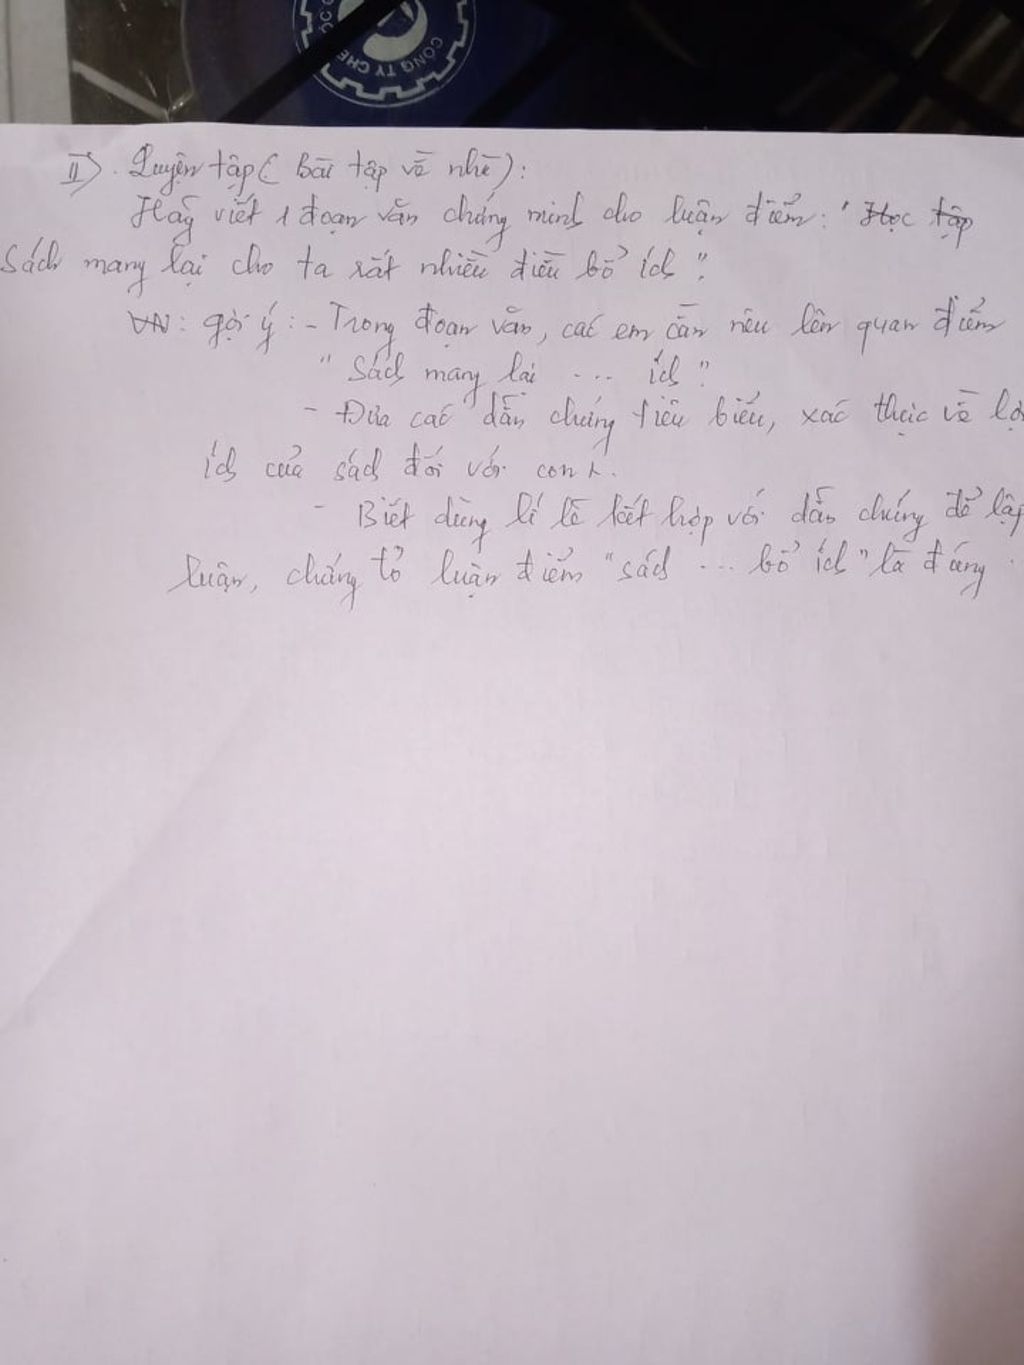 CÔNG TY CHÈ
II). Luyện tập ( Bài tập về nhà ):
Hãy viết 1 đoạn văn chứng minh cho luận điểm: " Học tập
Sách mang lại cho ta rất nhiều điều bổ ích ".
VN: gợi ý : - Trong đoạn văn, các em cần nêu lên quan điểm
" Sách mang lại ... ích ".
- Đưa các dẫn chứng tiêu biểu, xác thực về lợi
ích của sách đối với con .
- Biết dùng lí lẽ kết hợp với dẫn chứng để lập
luận, chứng tỏ luận điểm "sách ... bổ ích" là đúng.